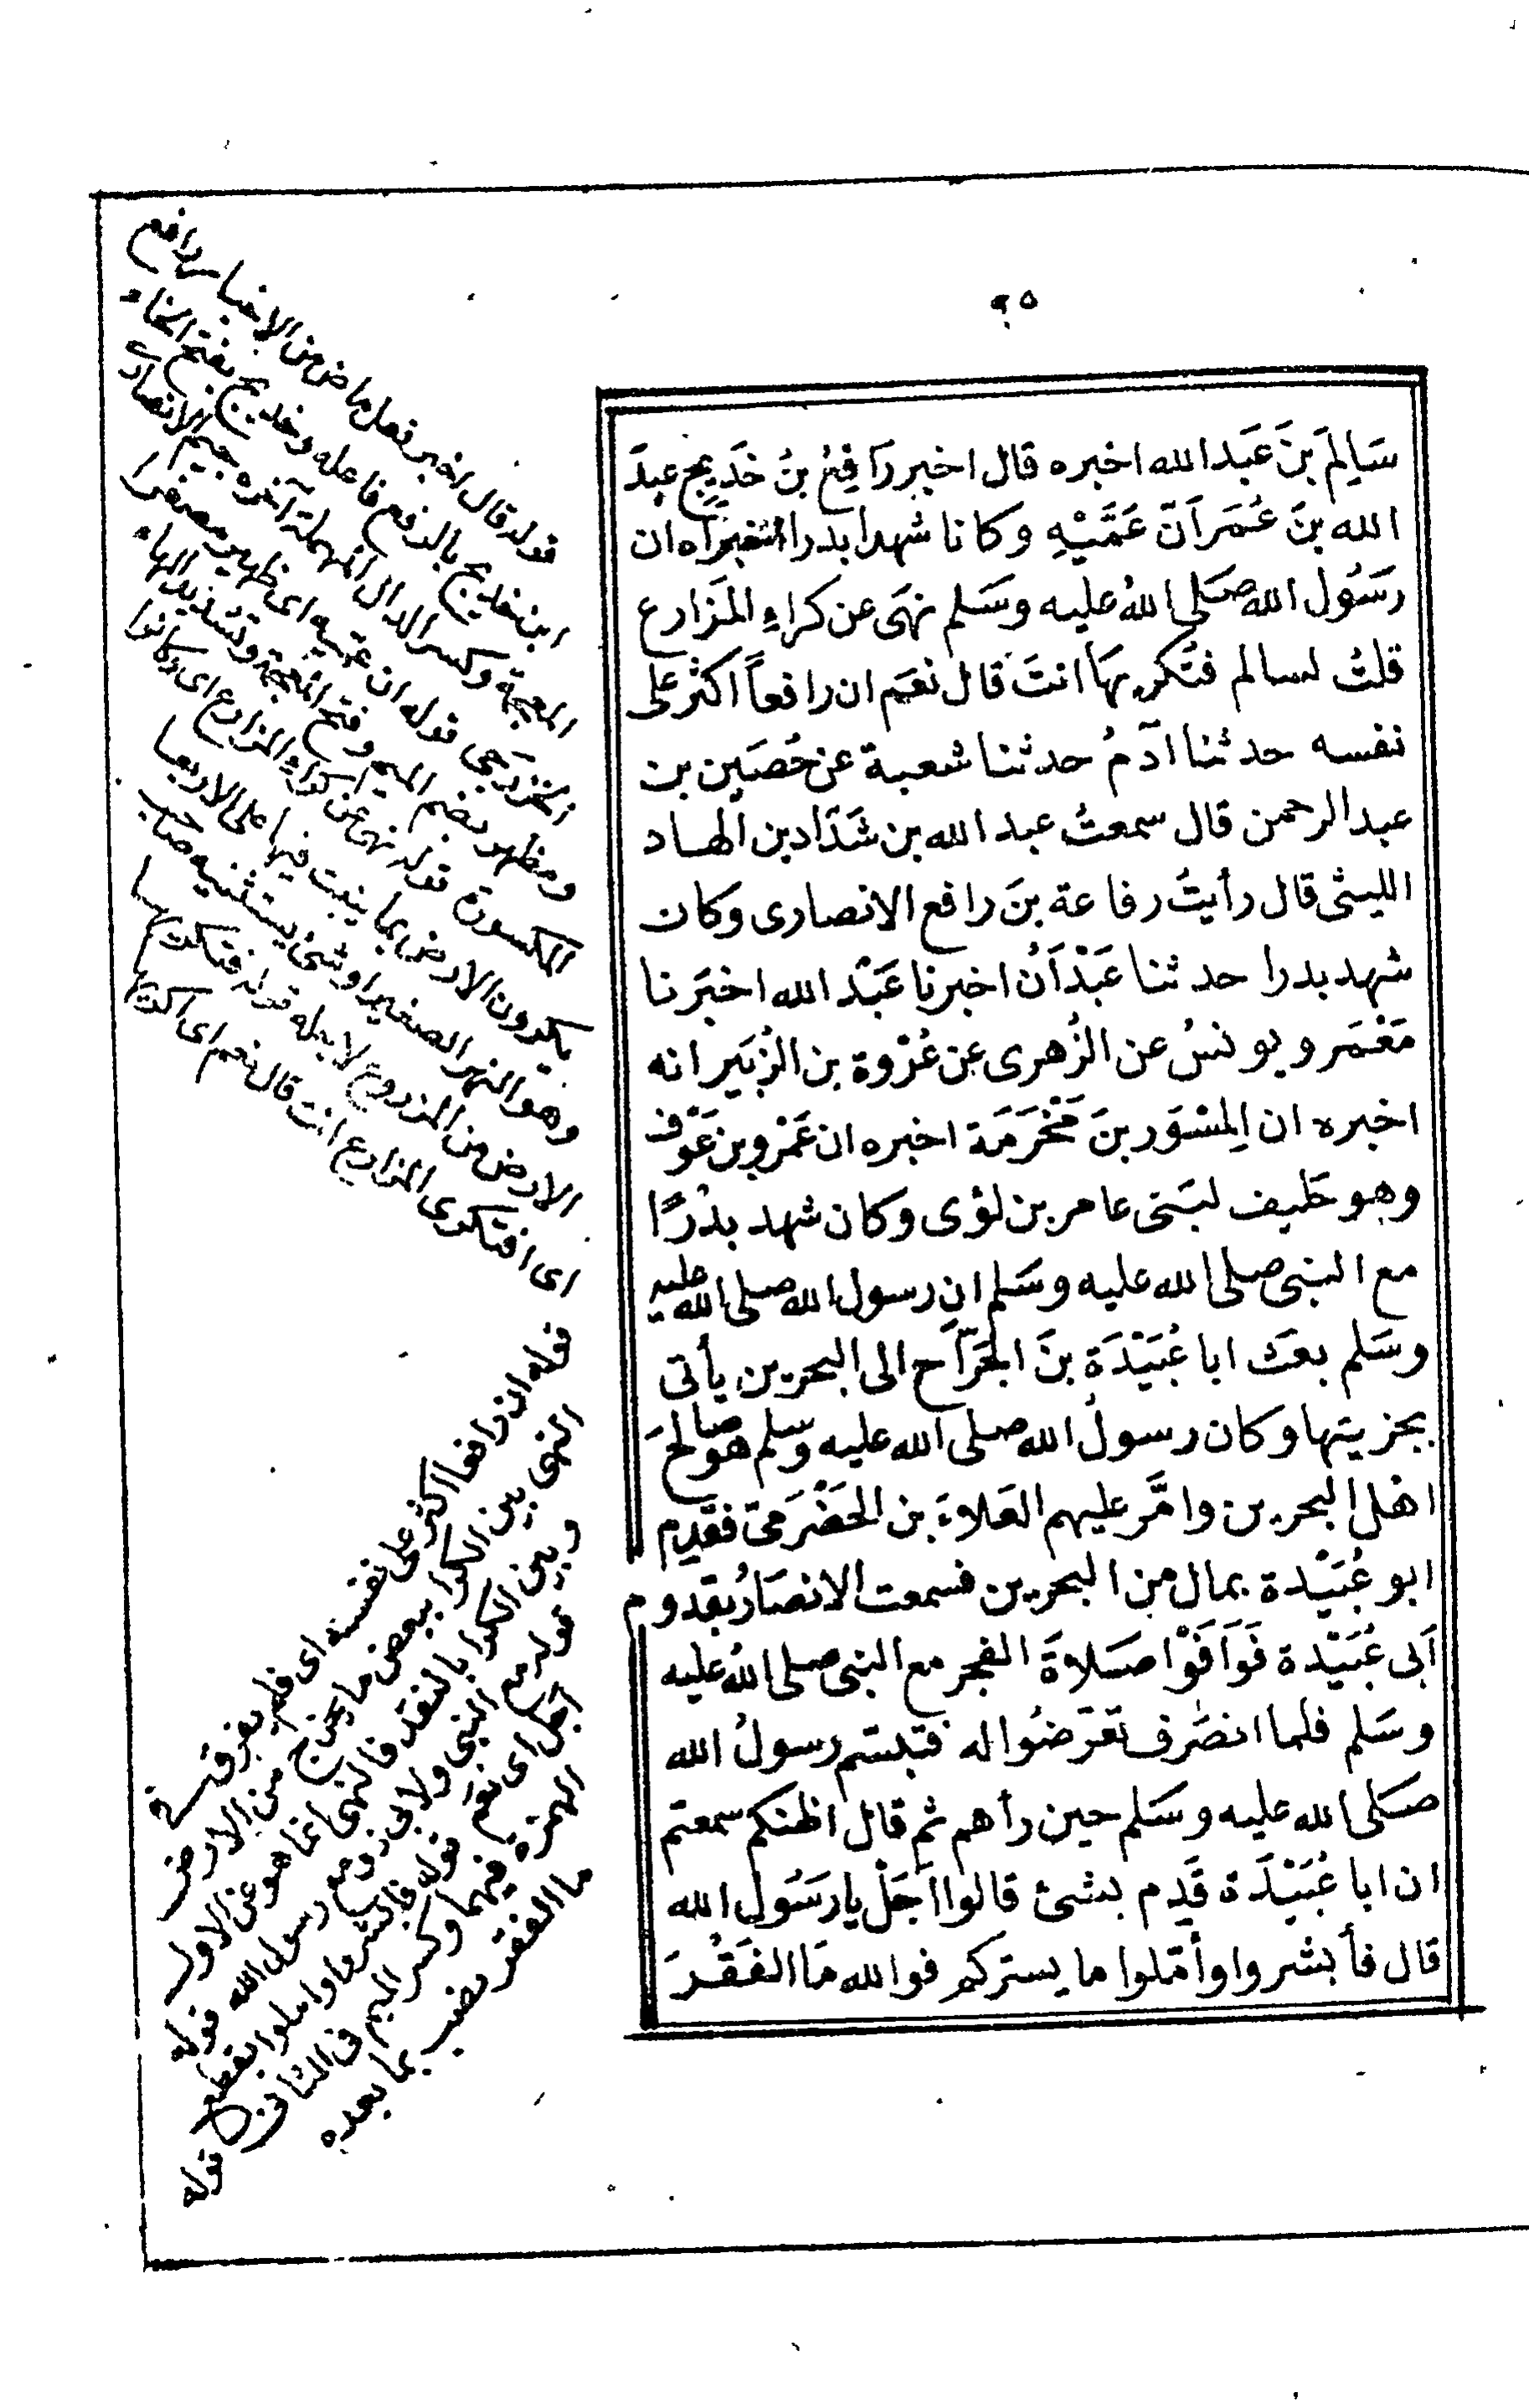 ٩٥
سَالِمَ بنَ عَبد الله اخبره قال اخبر رَافِعُ بنُ خَدِيج عبدَ
الله بنَ عُمَر اَنّ عَمَّيْهِ وكانا شهدا بدرا اخبَرَاه ان
رسُول الله صَلى اللهُ عليه وسَلم نهَى عن كراءِ المَزارع
قلتُ لسالم فتُكريهَا انتَ قال نعَم ان رافعاً اكثر على
نفسه حدثنا آدمُ حدثنا شعبة عن حُصَين بن
عبد الرحمن قال سمعتُ عبد الله بن شَدّاد بن الهاد
الليثى قال رأيتُ رفاعة بنَ رافع الانصارى وكان
شهد بدرا حدثنا عَبْدَانُ اخبرنا عَبْد الله اخبَرنا
مَعْمَر ويونسُ عن الزُهرى عن عُرْوة بن الزُبَير انه
اخبره ان المِسْوَر بنَ مَخْرَمَة اخبره ان عَمْرو بن عَوْف
وهو حَليف لبَنى عامر بن لؤى وكان شهد بدْرًا
مع النبى صلى الله عليه وسَلم ان رسول الله صلى الله عليه
وسَلم بعَث ابا عُبَيْدَة بنَ الجَرّاح الى البحرين يأتى
بجزيتها وكان رسولُ الله صلى الله عليه وسلم هو صالحَ
اهْل البحرين وامَّر عليهم العَلاءَ بن الحَضْرَمىّ فقَدِم
ابو عُبَيْدة بمال من البحرين فسمعت الانصَارُ بقدوم
اَبى عُبَيْدة فَوَافَوْا صَلاةَ الفجر مع النبى صلى اللهُ عليه
وسَلم فلما انصَرف تعَرضُوا له فتبسّم رسولُ الله
صَلى الله عليه وسَلم حين رأهم ثم قال اظنكم سمعتم
ان ابا عُبَيْدَة قَدِم بشئ قالوا اَجَلْ يا رسَُول الله
قال فأبشروا وأمّلوا ما يسَركم فوالله مَا الفَقْرَ
قوله قال اخبر فعل ماض من الاخبار رافع
ابن خديج بالرفع فاعله وخديج بفتح الخاء
المعجمة وكسر الدال المهملة آخره جيم الانصارى
الخزرجى قوله ان عمّيه اى ظهير مصغرا
ومظهر بضم الميم وفتح المعجمة وتشديد الهاء
المكسورة قوله نهى عن كراء المزارع اى وكانوا
يكرون الارض بما ينبت فيها على الاربعا
وهو النهر الصغير او شئ يستثنيه صاحب
الارض من المزروع لاجله قوله فتكريها
اى افتكرى المزارع انت قال نعم اى اكريها
قوله ان رافعا اكثر على نفسه اى فلم يفرق فى
النهى بين الكرا ببعض ما يخرج من الارض
وبين الكرا بالنقد فالنهى انما هو عن الاول
قوله مع النبى ولابى ذر مع رسول الله قوله
اجل اى نعم قوله فابشروا واملوا بقطع
الهمزة فيهما وكسر الميم فى الثانى قوله
ما الفقر نصب بما بعده